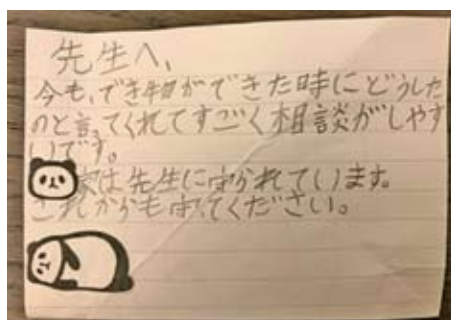 先生へ、
今も、でき物ができた時にどうした
のと言ってくれてすごく相談がしやす
いです。
家は先生に守られています。
これからも守ってください。